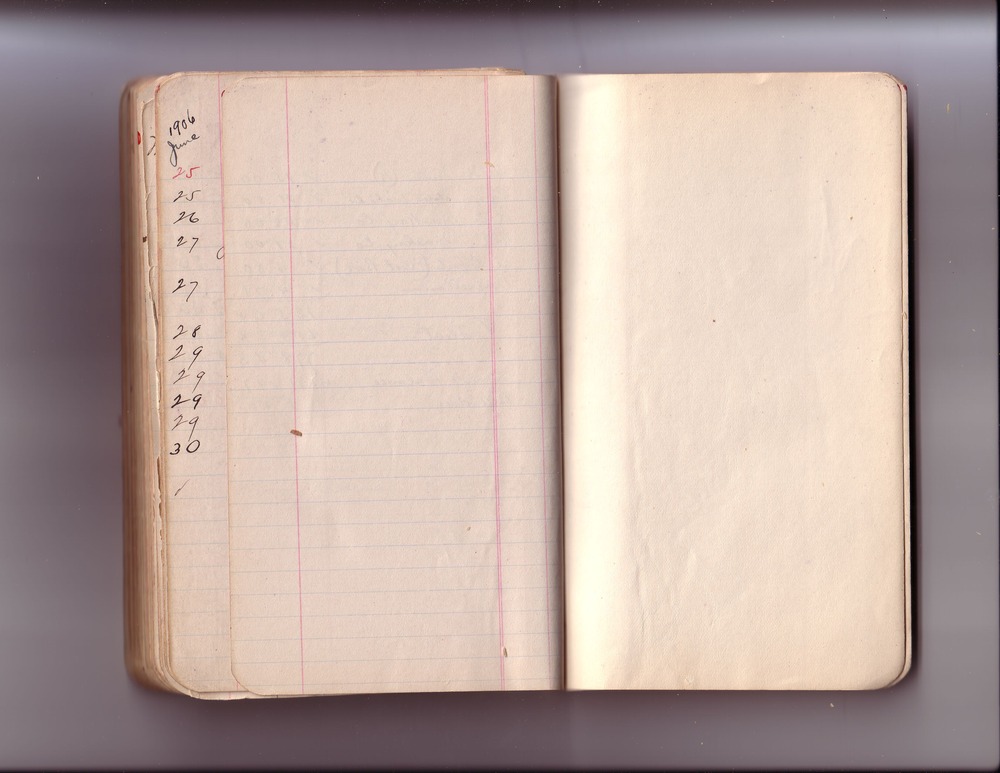 1906
June
25
25
26
27
27
28
29
29
29
29
30